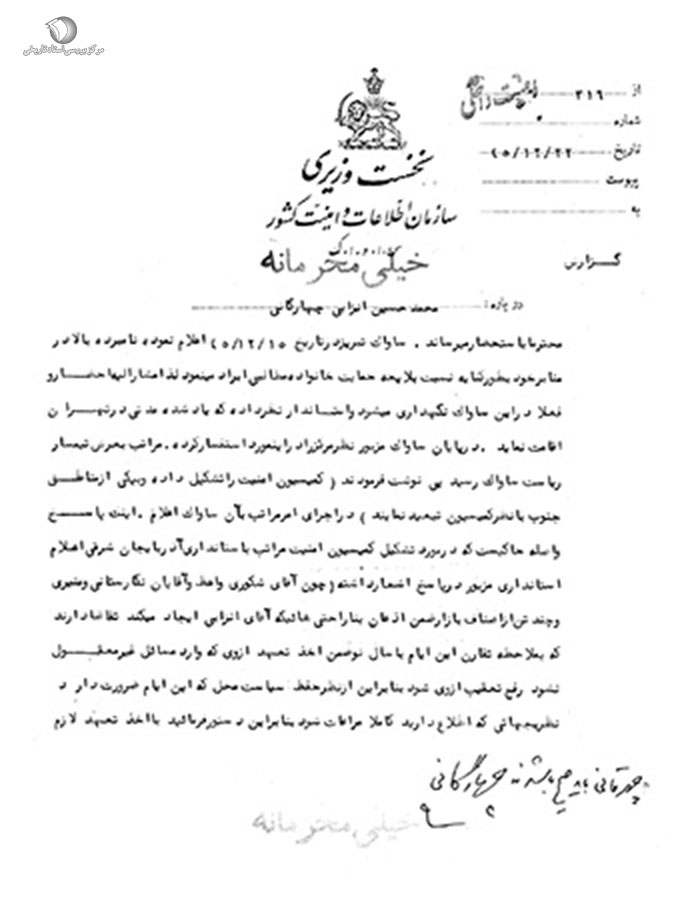 مرکز بررسی اسناد تاریخی
از ۳۱۶
شماره
تاریخ ۴۵/۱۲/۲۲
پیوست
به
نخست وزیری
سازمان اطلاعات و امنیت کشور
خیلی محرمانه
گزارش
درباره: محمد حسین انزابی چهارگانی
محترما باستحضار میرساند . ساواک تبریز در تاریخ ۴۵/۱۲/۱۵ اعلام نموده نامبرده بالا در
منابر خود بطور کنایه نسبت بلایحه حمایت خانواده مطالبی ایراد مینمود لذا مشارالیه احضار و
فعلا در این ساواک نگهداری میشود و استاندار نظر داده که یاد شده مدتی در تهران
اقامت نماید . در پایان ساواک مزبور نظر مرکز را در اینمورد استفسار کرده . مراتب بعرض تیمسار
ریاست ساواک رسید پی نوشت فرمودند ( کمیسیون امنیت را تشکیل داده و بیکی از مناطق
جنوب با نظر کمیسیون تبعید نمایند ) در اجرای امر مراتب بآن ساواک اعلام . اینک پاسخ
واصله حاکیست که در مورد تشکیل کمیسیون امنیت مراتب باستانداری آذربایجان شرقی اعلام
استانداری مزبور در پاسخ اشعار داشته ( چون آقای شکوری واعظ و آقایان نگارستانی و منیری
و چند تن از اصناف بازار ضمن اذعان بناراحتی هائیکه آقای انزابی ایجاد میکند تقاضا دارند
که بملاحظه تقارن این ایام با سال نو ضمن اخذ تعهد ازوی که وارد مسائل غیر معقول
نشود رفع تعقیب ازوی شود بنابراین از نظر حفظ سیاست محل که این ایام ضرورت دارد و
بنظر جهاتی که اطلاع دارید کاملا مراعات شود بنابراین دستور فرمائید با اخذ تعهد لازم
باید هم باشد نه چهارگانی
خیلی محرمانه